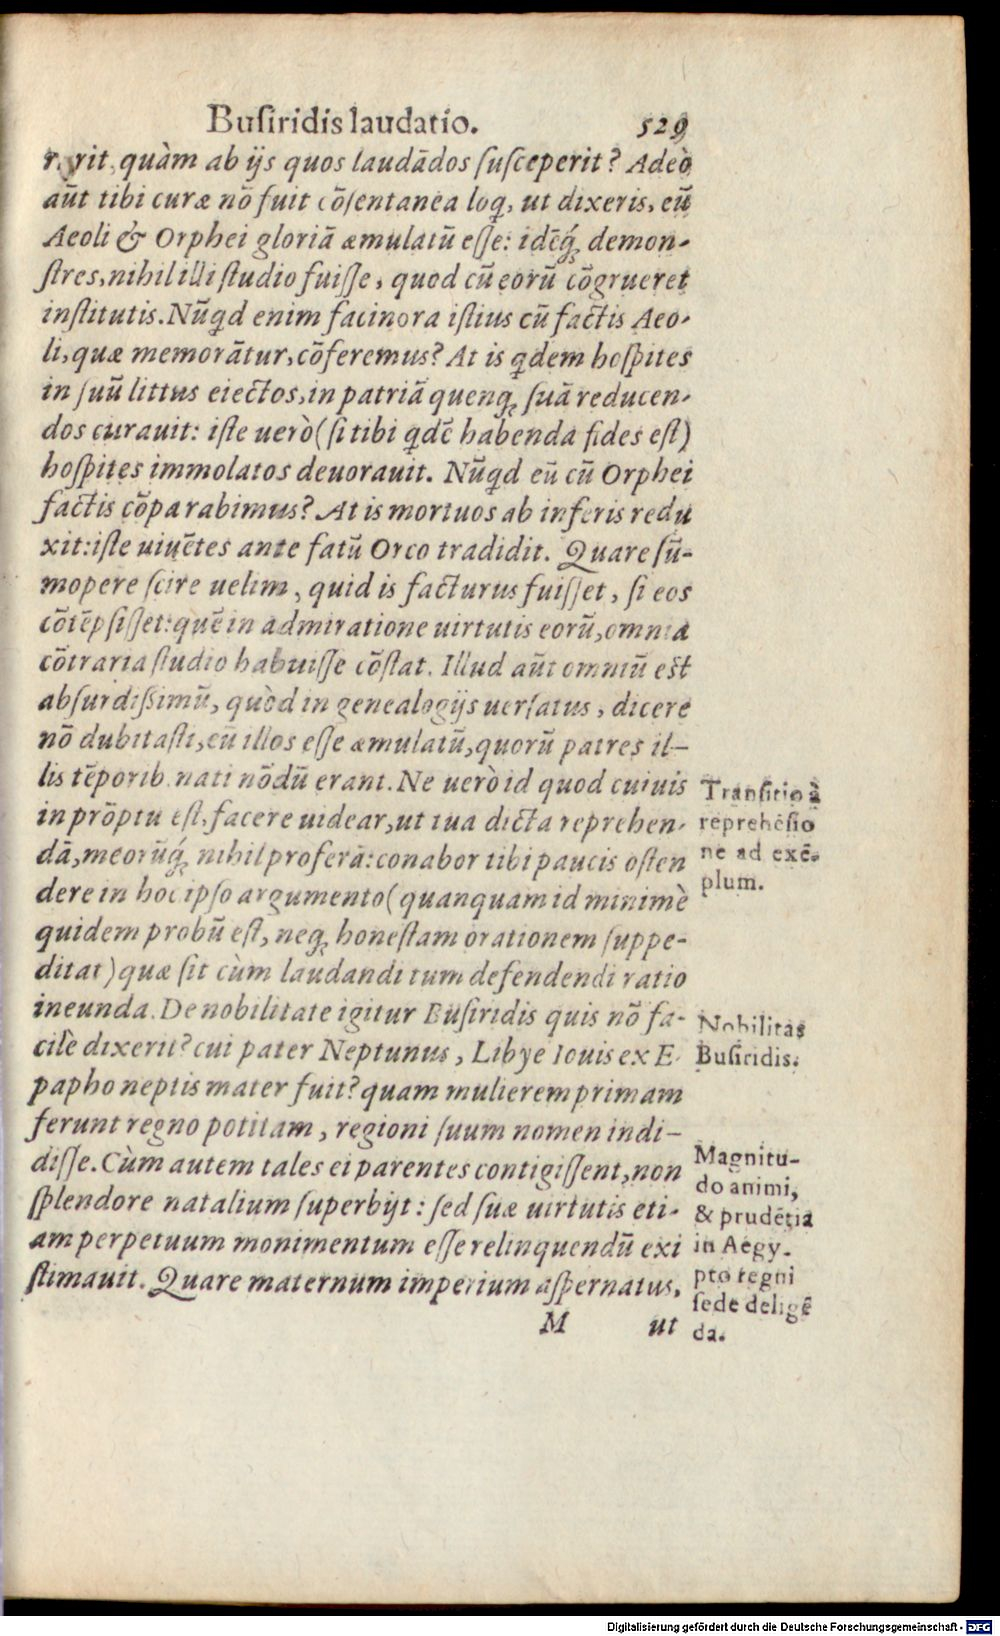 Buſiridis laudatio. 529
rit, quàm ab ijs quos laudādos ſuſceperit? Adeò
aūt tibi curæ nō fuit cōſentanea loq̄, ut dixeris, eū
Aeoli & Orphei gloriā æmulatū eſſe: idēq́; demon-
ſtres, nihil illi ſtudio fuiſſe, quod cū eorū cōgrueret
inſtitutis. Nūqd enim facinora iſtius cū factis Aeo-
li, quæ memorātur, cōferemus? At is qdem hoſpites
in ſuū littus eiectos, in patriā quenq; ſuā reducen-
dos curauit: iſte uerò (ſi tibi qdē habenda fides eſt)
hoſpites immolatos deuorauit. Nūqd eū cū Orphei
factis cōparabimus? At is mortuos ab inferis redu
xit: iſte uiuētes ante fatū Orco tradidit. Quare ſū-
mopere ſcire uelim, quid is facturus fuiſſet, ſi eos
cōtēpſiſſet: quē in admiratione uirtutis eorū, omnia
cōtraria ſtudio habuiſſe cōſtat. Illud aūt omniū eſt
abſurdiſſimū, quòd in genealogijs uerſatus, dicere
nō dubitaſti, eū illos eſſe æmulatū, quorū patres il-
lis tēporib. nati nōdū erant. Ne uerò id quod cuiuis
in prōptu eſt, facere uidear, ut tua dicta reprehen-
dā, meorūq́; nihil proferā: conabor tibi paucis oſten
dere in hoc ipſo argumento (quanquam id minimè
quidem probū eſt, neq; honeſtam orationem ſuppe-
ditat) quæ ſit cùm laudandi tum defendendi ratio
ineunda. De nobilitate igitur Buſiridis quis nō fa-
cilè dixerit? cui pater Neptunus, Libye Iouis ex E-
papho neptis mater fuit? quam mulierem primam
ferunt regno potitam, regioni ſuum nomen indi-
diſſe. Cùm autem tales ei parentes contigiſſent, non
ſplendore natalium ſuperbijt: ſed ſuæ uirtutis eti-
am perpetuum monimentum eſſe relinquendū exi
ſtimauit. Quare maternum imperium aſpernatus,
M ut
Tranſitio à
reprehēſio
ne ad exē-
plum.
Nobilitas
Buſiridis.
Magnitu-
do animi,
& prudētia
in Aegy-
pto regni
ſede deligē
da.
Digitalisierung gefördert durch die Deutsche Forschungsgemeinschaft - DFG